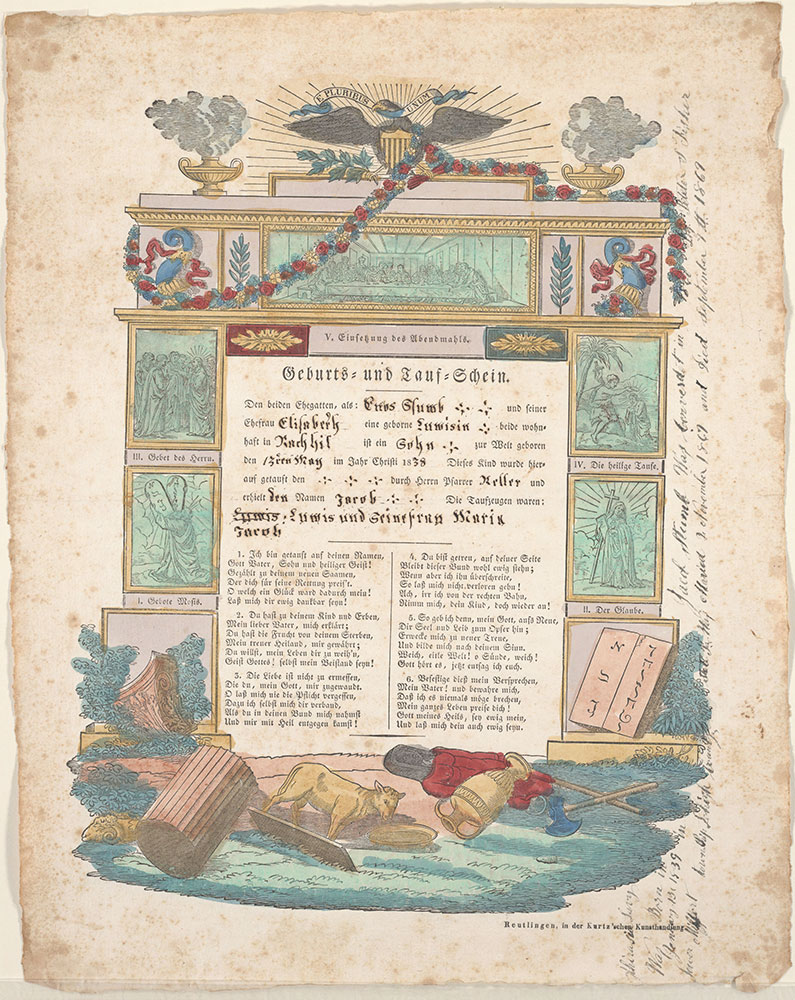 E PLURIBUS UNUM
V. Einsetzung des Abendmahls.
Geburts- und Tauf-Schein.
Den beiden Ehegatten, als: Enos Stumb und seiner
Ehefrau Elisabeth eine geborne Luwisin beide wohn-
haft in Rachhil ist ein Sohn zur Welt geboren
den 13ten May im Jahr Christi 1838 Dieses Kind wurde hier-
auf getauft den durch Herrn Pfarrer Keller und
erhielt den Namen Jacob Die Taufzeugen waren:
Luwis: Luwis und Seine frau Maria
Jacob
III. Gebet des Herrn.
IV. Die heilige Taufe.
I. Gebote Mosis.
II. Der Glaube.
1. Ich bin getauft auf deinen Namen,
Gott Vater, Sohn und heiliger Geist!
Gezählt zu deinem neuen Saamen,
Der dich für seine Rettung preis't.
O welch ein Glück ward dadurch mein!
Laß mich dir ewig dankbar seyn!
2. Du hast zu deinem Kind und Erben,
Mein lieber Vater, mich erklärt;
Du hast die Frucht von deinem Sterben,
Mein treuer Heiland, mir gewährt;
Du willt, mein Leben dir zu weih'n,
Geist Gottes! selbst mein Beistand seyn!
3. Die Liebe ist nicht zu ermessen,
Die du, mein Gott, mir zugewandt.
O laß mich nie die Pflicht vergessen,
Dazu ich selbst mich dir verband,
Als du in deinen Bund mich nahmst
Und mir mit Heil entgegen kamst!
4. Du bist getreu, auf deiner Seite
Bleibt dieser Bund wohl ewig stehn;
Wenn aber ich ihn überschreite,
So laß mich nicht verloren gehn!
Ach, irr ich von der rechten Bahn,
Nimm mich, dein Kind, doch wieder an!
5. So geb ich denn, mein Gott, aufs Neue,
Dir Seel und Leib zum Opfer hin;
Erwecke mich zu neuer Treue,
Und bilde mich nach deinem Sinn.
Weich, eitle Welt! o Sünde, weich!
Gott hört es, jetzt entsag ich euch.
6. Befestige dieß mein Versprechen,
Mein Vater! und bewahre mich,
Daß ich es niemals möge brechen,
Mein ganzes Leben preise dich!
Gott meines Heils, sey ewig mein,
Und laß mich dein auch ewig seyn.
Reutlingen, in der Kurtz'schen Kunsthandlung.
Jacob Stumb Was Converdet in
Maried November 1867 and Died September 1869
Was Born in
January 13 1839 in